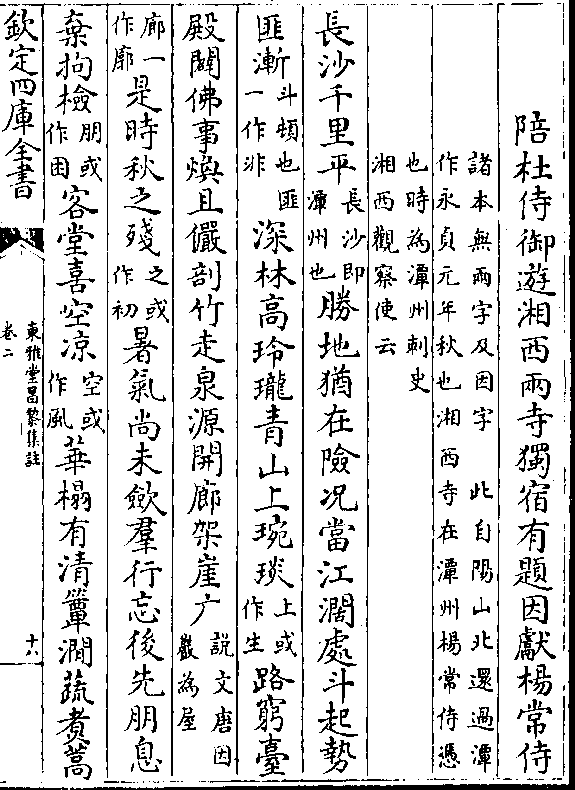 陪杜侍御遊湘西兩寺獨宿有題因獻楊常侍
諸本無兩字及因字 此自陽山北還過潭
作永貞元年秋也湘西寺在潭州楊常侍憑
也時為潭州刺史
湘西觀察使云
長沙千里平長沙即潭州也勝地猶在險况當江濶處斗起勢
匪漸斗頓也匪一作非深林高玲瓏青山上琬琰上或作生路窮臺
殿闢佛事煥且儼剖竹走泉源開廊架崖广説文廣因巖為屋
廊一作廓是時秋之殘之或作初暑氣尚未歛羣行忘後先朋息
棄拘檢朋或作困客堂喜空凉空或作風華榻有清簟澗蔬煮蒿
欽定四庫全書
東雅堂昌黎集註
卷二
十六